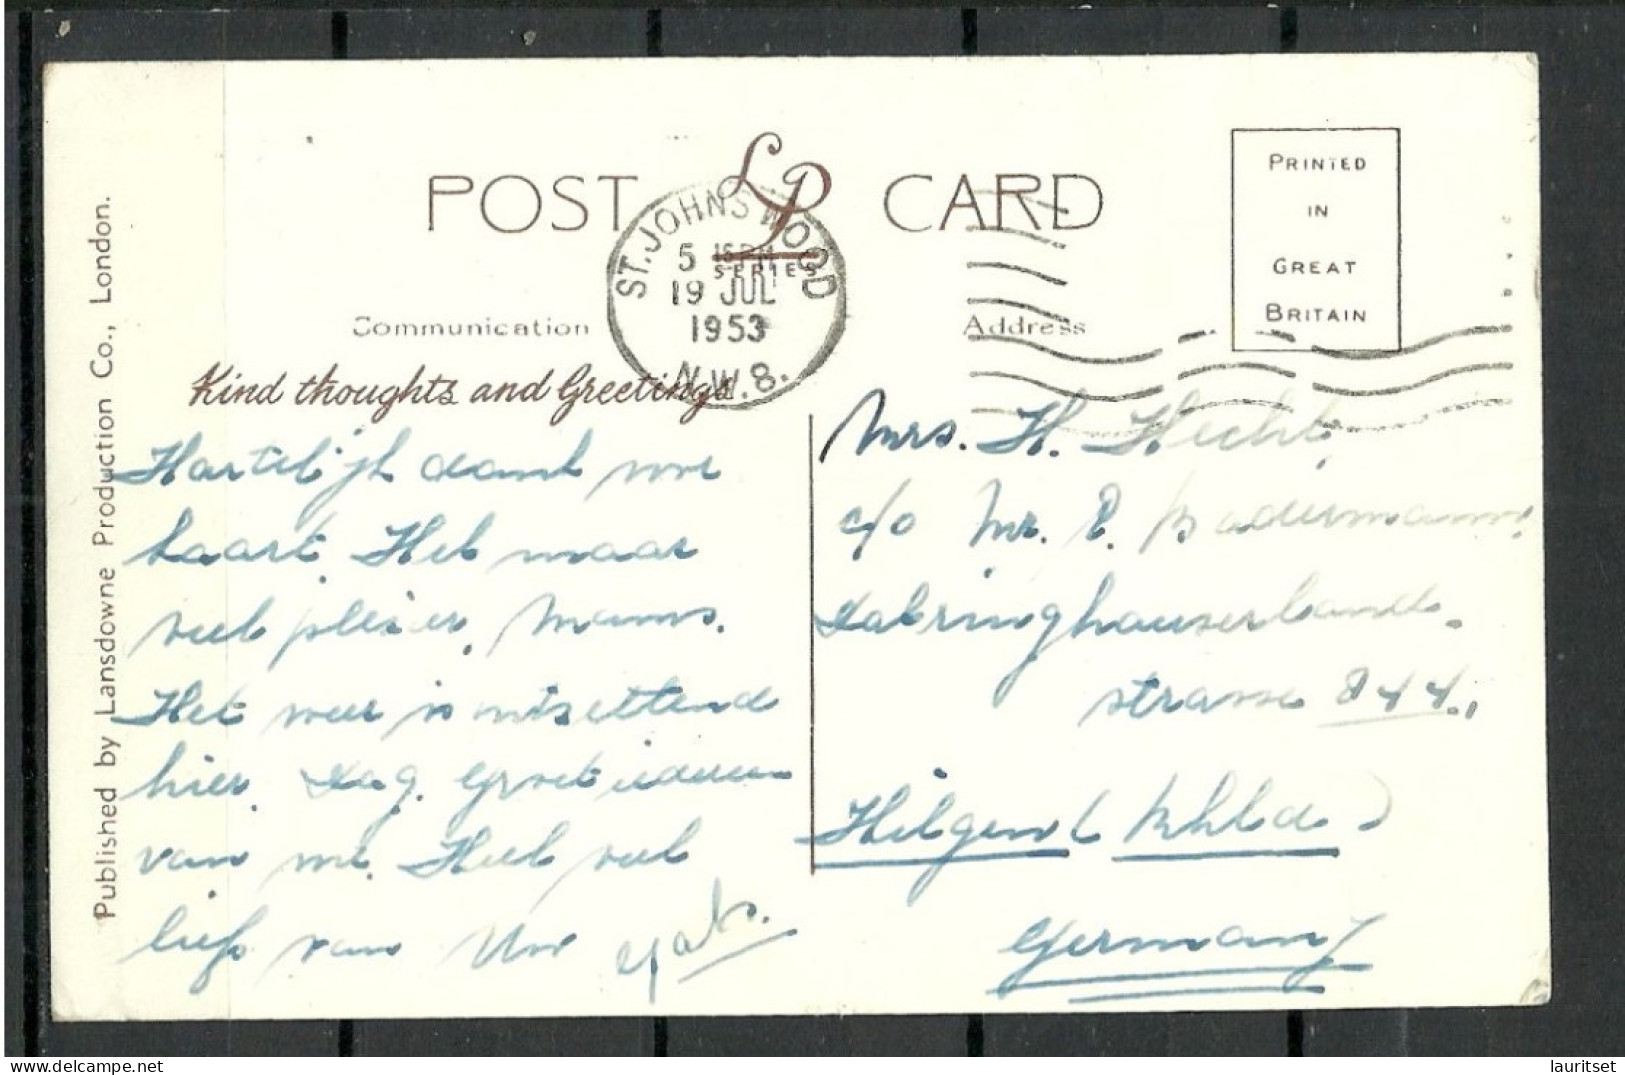 Published by Lansdowne Production Co., London.
POST CARD
LP
SERIES
ST. JOHNS WOOD
5 15 PM
19 JUL
1953
N.W.8.
PRINTED
IN
GREAT
BRITAIN
Communication
Address
Kind thoughts and Greetings
Hartelijk dank voor
kaart. Heb maar
veel plezier, Mams.
Het weer is ontzettend
hier. Dag. Groet iedereen
van me. Heel veel
liefs van Uw
Mrs. H. Hecht,
c/o Mr. E. Badermann,
Dabringhauserland-
strasse 844.,
Hilgen (Rhld)
Germany
lauritset